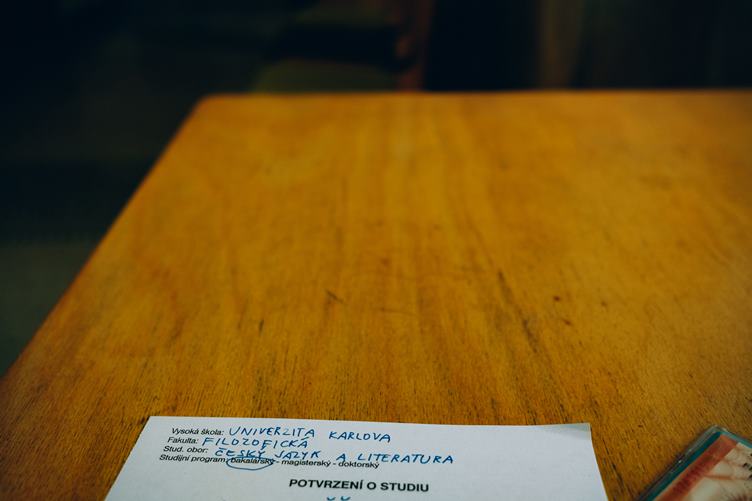 Vysoká škola: UNIVERZITA KARLOVA
Fakulta: FILOZOFICKÁ
Stud. obor: ČESKÝ JAZYK A LITERATURA
Studijní program: bakalářský - magisterský - doktorský
POTVRZENÍ O STUDIU